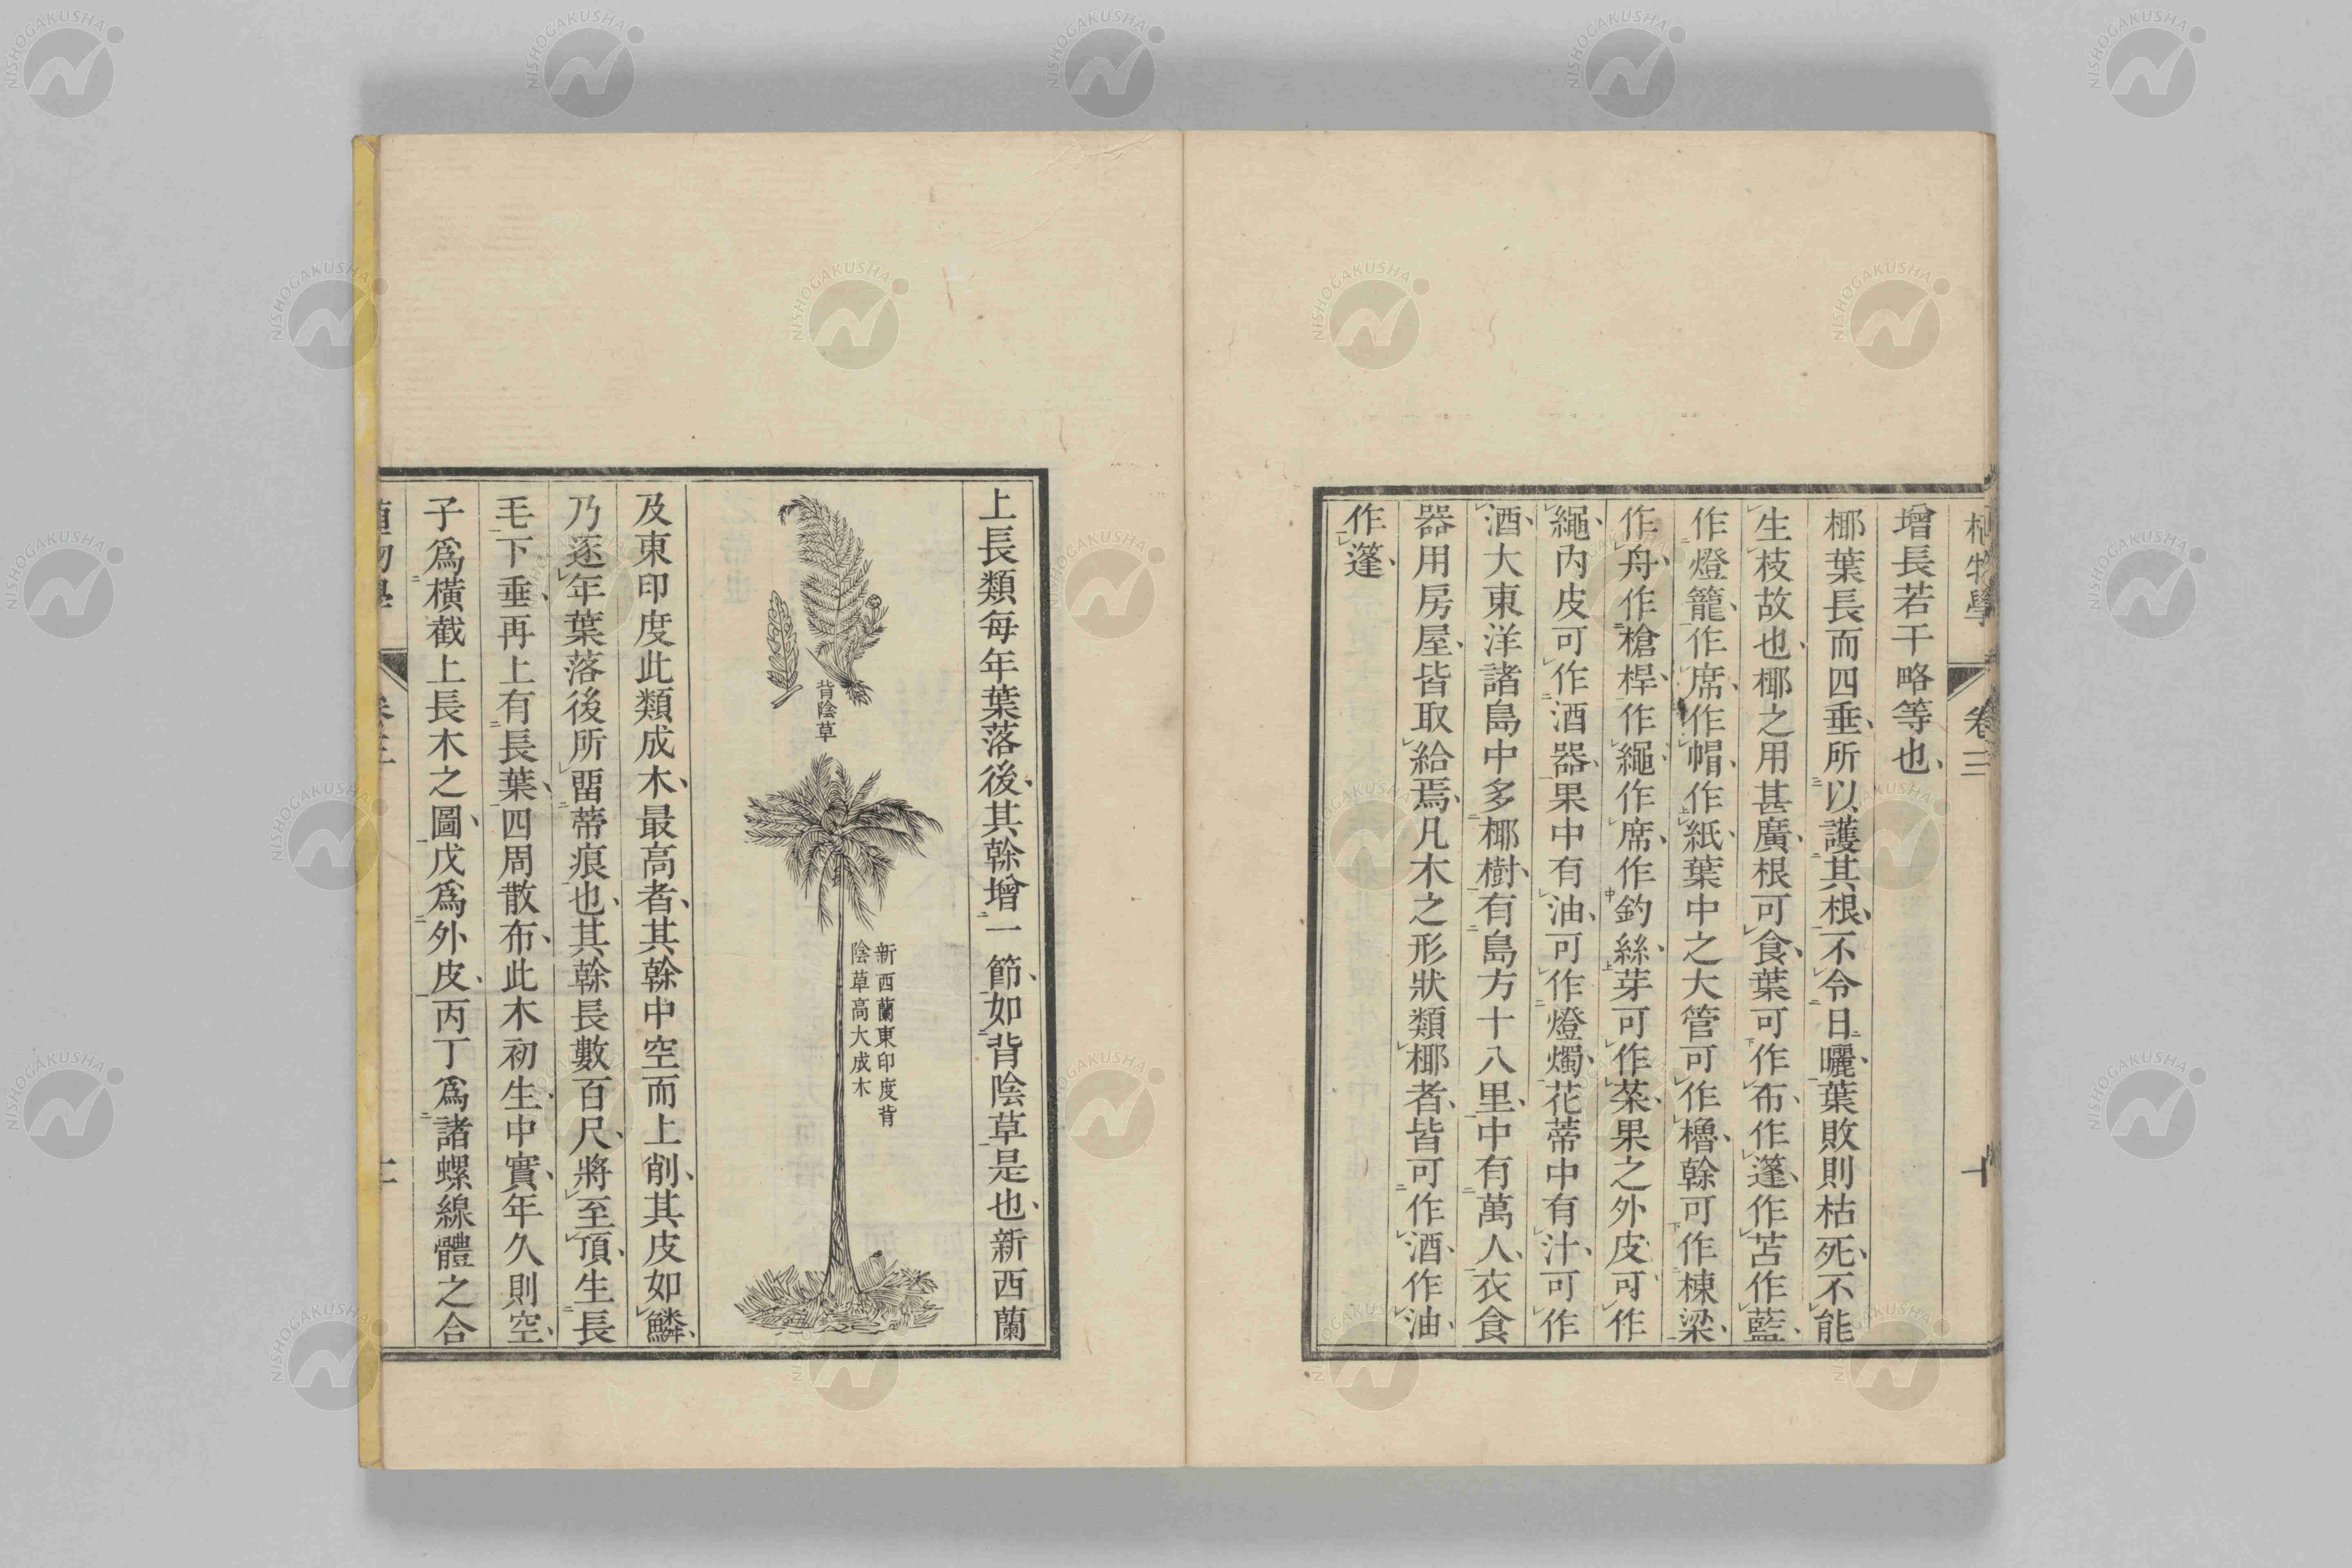 植物學 卷三 十
增長若干略等也、
椰葉長而四垂、所以護其根、不令日曬、葉敗則枯死、不能
生枝故也、椰之用甚廣、根可食、葉可作布、作蓬、作苫作藍、
作燈籠、作席、作帽、作紙、葉中之大管可作櫓、榦可作棟梁、
作舟、作槍桿、作繩、作席、作釣絲、芽可作菜、果之外皮可作
繩、內皮可作酒器、果中有油、可作燈燭、花蒂中有汁、可作
酒、大東洋諸島中多椰樹、有島方十八里、中有萬人、衣食
器用房屋、皆取給焉、凡木之形狀類椰者、皆可作酒、作油、
作蓬、
上長類每年葉落後、其榦增一節、如背陰草是也、新西蘭
背陰草
新西蘭東印度背
陰草高大成木
及東印度此類成木、最高者、其榦中空而上削、其皮如鱗、
乃逐年葉落後所留蒂痕也、其榦長數百尺、將至頂、生長
毛、下垂、再上有長葉、四周散布、此木初生、中實、年久則空、
子爲橫截上長木之圖、戊爲外皮、丙丁爲諸螺線體之合
植物學 卷三
NISHOGAKUSHA